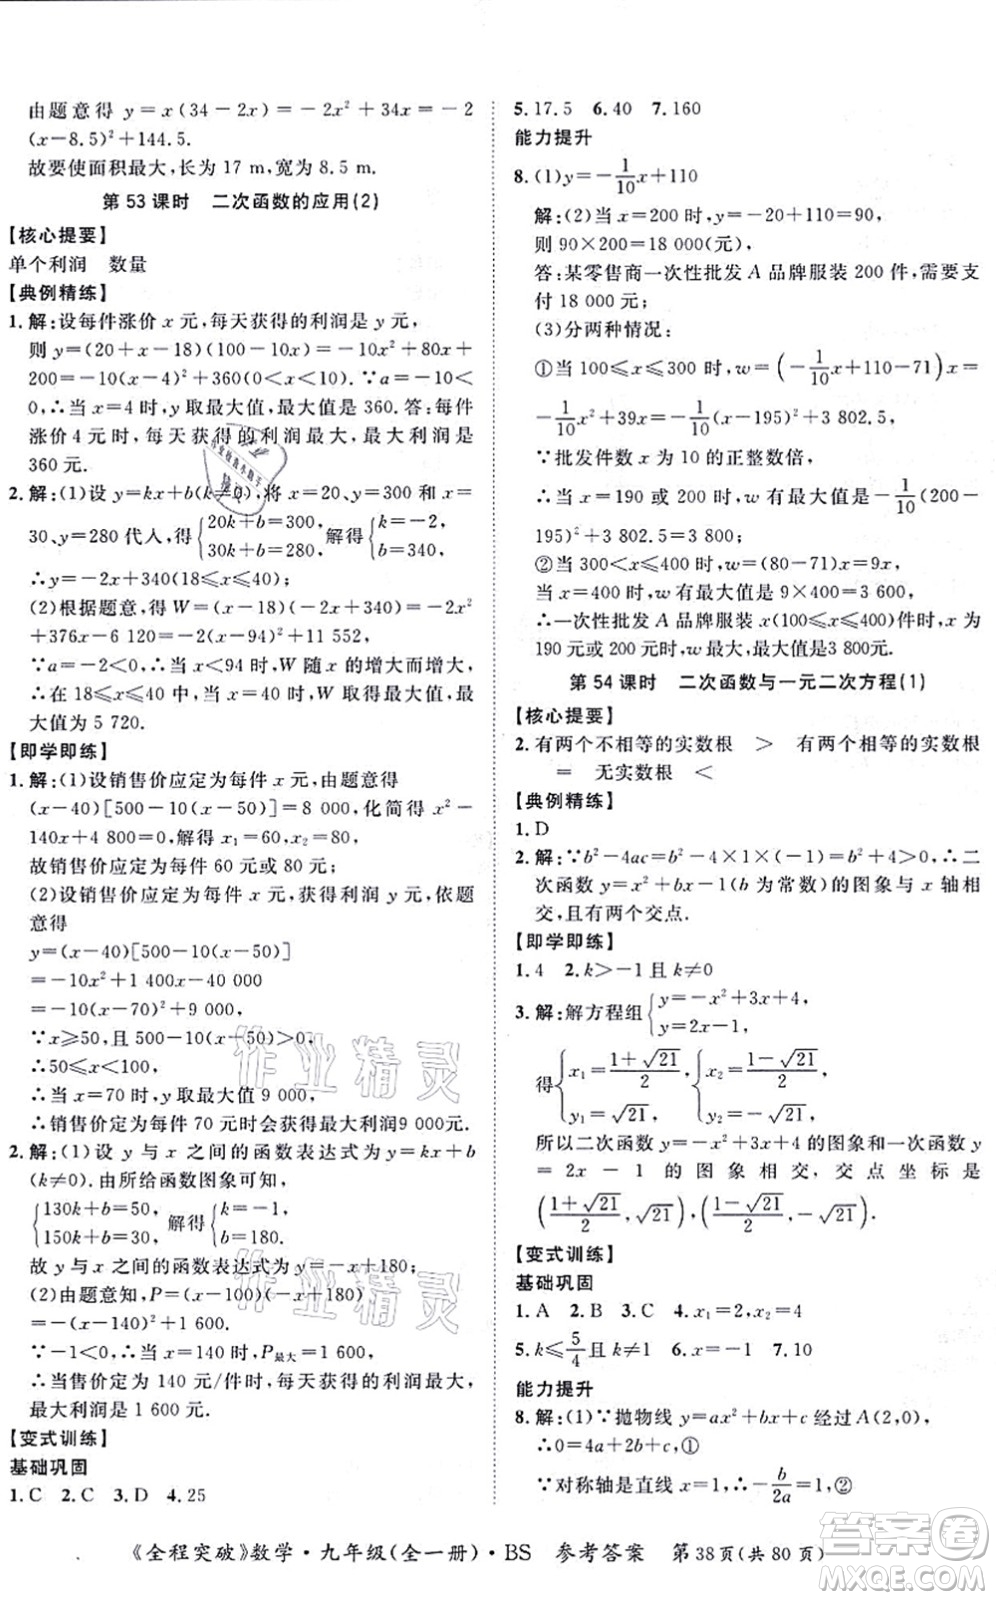 由题意得 y=x(34-2x)=-2x²+34x=-2
(x-8.5)²+144.5.
故要使面积最大,长为 17 m,宽为 8.5 m.
第 53 课时 二次函数的应用(2)
【核心提要】
单个利润 数量
【典例精练】
1.解:设每件涨价 x 元,每天获得的利润是 y 元,
则 y=(20+x-18)(100-10x)=-10x²+80x+
200=-10(x-4)²+360(0<x<10).∵a=-10<
0,∴当 x=4 时,y 取最大值,最大值是 360.答:每件
涨价4元时,每天获得的利润最大,最大利润是
360 元.
2.解:(1)设 y=kx+b(k≠0),将 x=20、y=300 和 x=
30、y=280 代入,得{20k+b=300, 30k+b=280,解得{k=-2, b=340,
∴y=-2x+340(18≤x≤40);
(2)根据题意,得 W=(x-18)(-2x+340)=-2x²
+376x-6 120=-2(x-94)²+11 552,
∵a=-2<0,∴当 x<94 时,W 随 x 的增大而增大,
∴在 18≤x≤40 中,当 x=40 时,W 取得最大值,最
大值为 5 720.
【即学即练】
1.解:(1)设销售价应定为每件 x 元,由题意得
(x-40)[500-10(x-50)]=8 000,化简得 x²-
140x+4 800=0,解得 x₁=60,x₂=80.
故销售价应定为每件 60 元或 80 元;
(2)设销售价应定为每件 x 元,获得利润 y 元,依题
意得
y=(x-40)[500-10(x-50)]
=-10x²+1 400x-40 000
=-10(x-70)²+9 000.
∵x≥50,且 500-10(x-50)>0,
∴50≤x<100.
∴当 x=70 时,y 取最大值 9 000.
∴销售价应定为每件 70 元时会获得最大利润9 000元.
2.解:(1)设 y 与 x 之间的函数表达式为 y=kx+b
(k≠0).由所给函数图象可知,
{130k+b=50, 150k+b=30,解得{k=-1, b=180.
故 y 与 x 之间的函数表达式为 y=-x+180;
(2)由题意知,P=(x-100)(-x+180)
=-(x-140)²+1 600.
∵-1<0,∴当 x=140 时,P最大=1 600,
∴售价定为 140 元/件时,每天获得的利润最大,
最大利润是 1 600 元.
【变式训练】
基础巩固
1.C 2.C 3.D 4.25
5.17.5 6.40 7.160
能力提升
8.(1)y=-1/10x+110
解:(2)当 x=200 时,y=-20+110=90,
则 90×200=18 000(元),
答:某零售商一次性批发 A 品牌服装 200 件,需要支
付 18 000 元;
(3)分两种情况:
①当 100≤x≤300 时,w=(-1/10x+110-71)x=
-1/10x²+39x=-1/10(x-195)²+3 802.5,
∵批发件数 x 为 10 的正整数倍,
∴当 x=190 或 200 时,w 有最大值是-1/10(200-
195)²+3 802.5=3 800;
②当 300<x≤400 时,w=(80-71)x=9x,
当 x=400 时,w 有最大值是 9×400=3 600,
∴一次性批发 A 品牌服装 x(100≤x≤400)件时,x 为
190 元或 200 元时,w 最大,最大值是3 800元.
第 54 课时 二次函数与一元二次方程(1)
【核心提要】
2.有两个不相等的实数根 > 有两个相等的实数根
= 无实数根 <
【典例精练】
1.D
2.解:∵b²-4ac=b²-4×1×(-1)=b²+4>0,∴二
次函数 y=x²+bx-1(b 为常数)的图象与 x 轴相
交,且有两个交点.
【即学即练】
1.4 2.k>-1 且 k≠0
3.解:解方程组{y=-x²+3x+4, y=2x-1,
得{x₁=(1+√21)/2, y₁=√21, {x₂=(1-√21)/2, y₂=-√21,
所以二次函数 y=-x²+3x+4的图象和一次函数 y
=2x-1 的图象相交,交点坐标是
((1+√21)/2,√21),((1-√21)/2,-√21).
【变式训练】
基础巩固
1.A 2.B 3.C 4.x₁=2,x₂=4
5.k≤5/4且 k≠1 6.x=-1 7.10
能力提升
8.解:(1)∵抛物线 y=ax²+bx+c 经过 A(2,0),
∴0=4a+2b+c,①
∵对称轴是直线 x=1,∴-b/2a=1,②
《全程突破》数学·九年级(全一册)·BS 参考答案 第38页(共 80 页)
作业精灵
作业精灵
答案圈
MXQE.COM